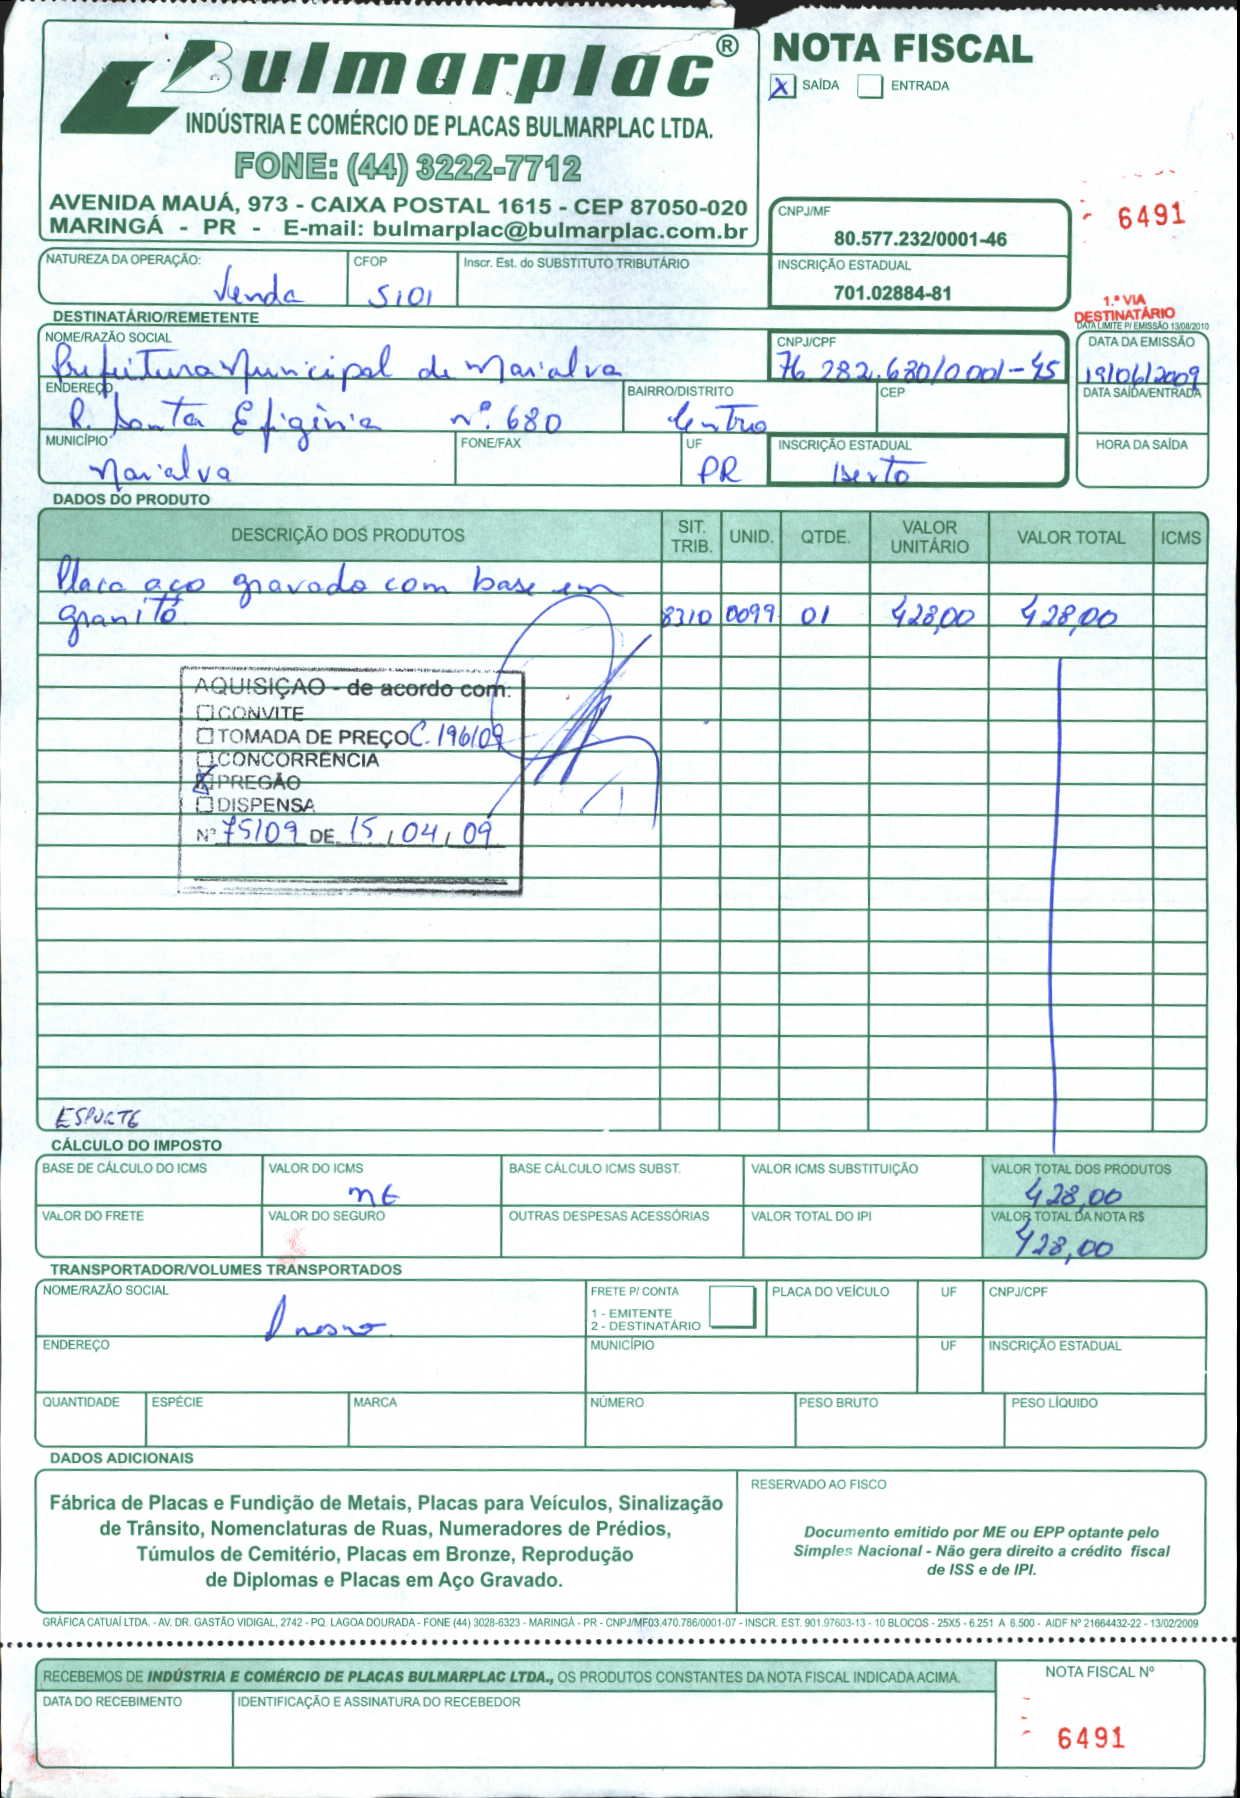 Bulmarplac®
INDÚSTRIA E COMÉRCIO DE PLACAS BULMARPLAC LTDA.
FONE: (44) 3222-7712
AVENIDA MAUÁ, 973 - CAIXA POSTAL 1615 - CEP 87050-020
MARINGÁ - PR - E-mail: bulmarplac@bulmarplac.com.br
NOTA FISCAL
X SAÍDA ENTRADA
6491
CNPJ/MF
80.577.232/0001-46
INSCRIÇÃO ESTADUAL
701.02884-81
1.ª VIA
DESTINATÁRIO
DATA LIMITE P/ EMISSÃO 13/08/2010
NATUREZA DA OPERAÇÃO: CFOP Inscr. Est. do SUBSTITUTO TRIBUTÁRIO
Venda 5101
DESTINATÁRIO/REMETENTE
NOME/RAZÃO SOCIAL CNPJ/CPF DATA DA EMISSÃO
Prefeitura Municipal de Marialva 76.282.680/0001-45 19/06/2009
ENDEREÇO BAIRRO/DISTRITO CEP DATA SAÍDA/ENTRADA
R. Santa Efigênia nº. 680 Centro
MUNICÍPIO FONE/FAX UF INSCRIÇÃO ESTADUAL HORA DA SAÍDA
Marialva PR Iserto
DADOS DO PRODUTO
DESCRIÇÃO DOS PRODUTOS SIT. TRIB. UNID. QTDE. VALOR UNITÁRIO VALOR TOTAL ICMS
Placa aço gravado com base em
granito 8310 0099 01 428,00 428,00
AQUISIÇÃO - de acordo com:
CONVITE
TOMADA DE PREÇO C. 196/09
CONCORRÊNCIA
X PREGÃO
DISPENSA
Nº 75/09 DE 15 / 04 / 09
ESPORTE
CÁLCULO DO IMPOSTO
BASE DE CÁLCULO DO ICMS VALOR DO ICMS BASE CÁLCULO ICMS SUBST. VALOR ICMS SUBSTITUIÇÃO VALOR TOTAL DOS PRODUTOS
ME 428,00
VALOR DO FRETE VALOR DO SEGURO OUTRAS DESPESAS ACESSÓRIAS VALOR TOTAL DO IPI VALOR TOTAL DA NOTA R$
428,00
TRANSPORTADOR/VOLUMES TRANSPORTADOS
NOME/RAZÃO SOCIAL FRETE P/ CONTA PLACA DO VEÍCULO UF CNPJ/CPF
1 - EMITENTE
2 - DESTINATÁRIO
ENDEREÇO MUNICÍPIO UF INSCRIÇÃO ESTADUAL
QUANTIDADE ESPÉCIE MARCA NÚMERO PESO BRUTO PESO LÍQUIDO
DADOS ADICIONAIS
Fábrica de Placas e Fundição de Metais, Placas para Veículos, Sinalização
de Trânsito, Nomenclaturas de Ruas, Numeradores de Prédios,
Túmulos de Cemitério, Placas em Bronze, Reprodução
de Diplomas e Placas em Aço Gravado.
RESERVADO AO FISCO
Documento emitido por ME ou EPP optante pelo
Simples Nacional - Não gera direito a crédito fiscal
de ISS e de IPI.
GRÁFICA CATUAÍ LTDA. - AV. DR. GASTÃO VIDIGAL, 2742 - PQ. LAGOA DOURADA - FONE (44) 3028-6323 - MARINGÁ - PR - CNPJ/MF03.470.786/0001-07 - INSCR. EST. 901.97603-13 - 10 BLOCOS - 25X5 - 6.251 A 6.500 - AIDF Nº 21664432-22 - 13/02/2009
RECEBEMOS DE INDÚSTRIA E COMÉRCIO DE PLACAS BULMARPLAC LTDA., OS PRODUTOS CONSTANTES DA NOTA FISCAL INDICADA ACIMA.
DATA DO RECEBIMENTO IDENTIFICAÇÃO E ASSINATURA DO RECEBEDOR
NOTA FISCAL Nº
6491